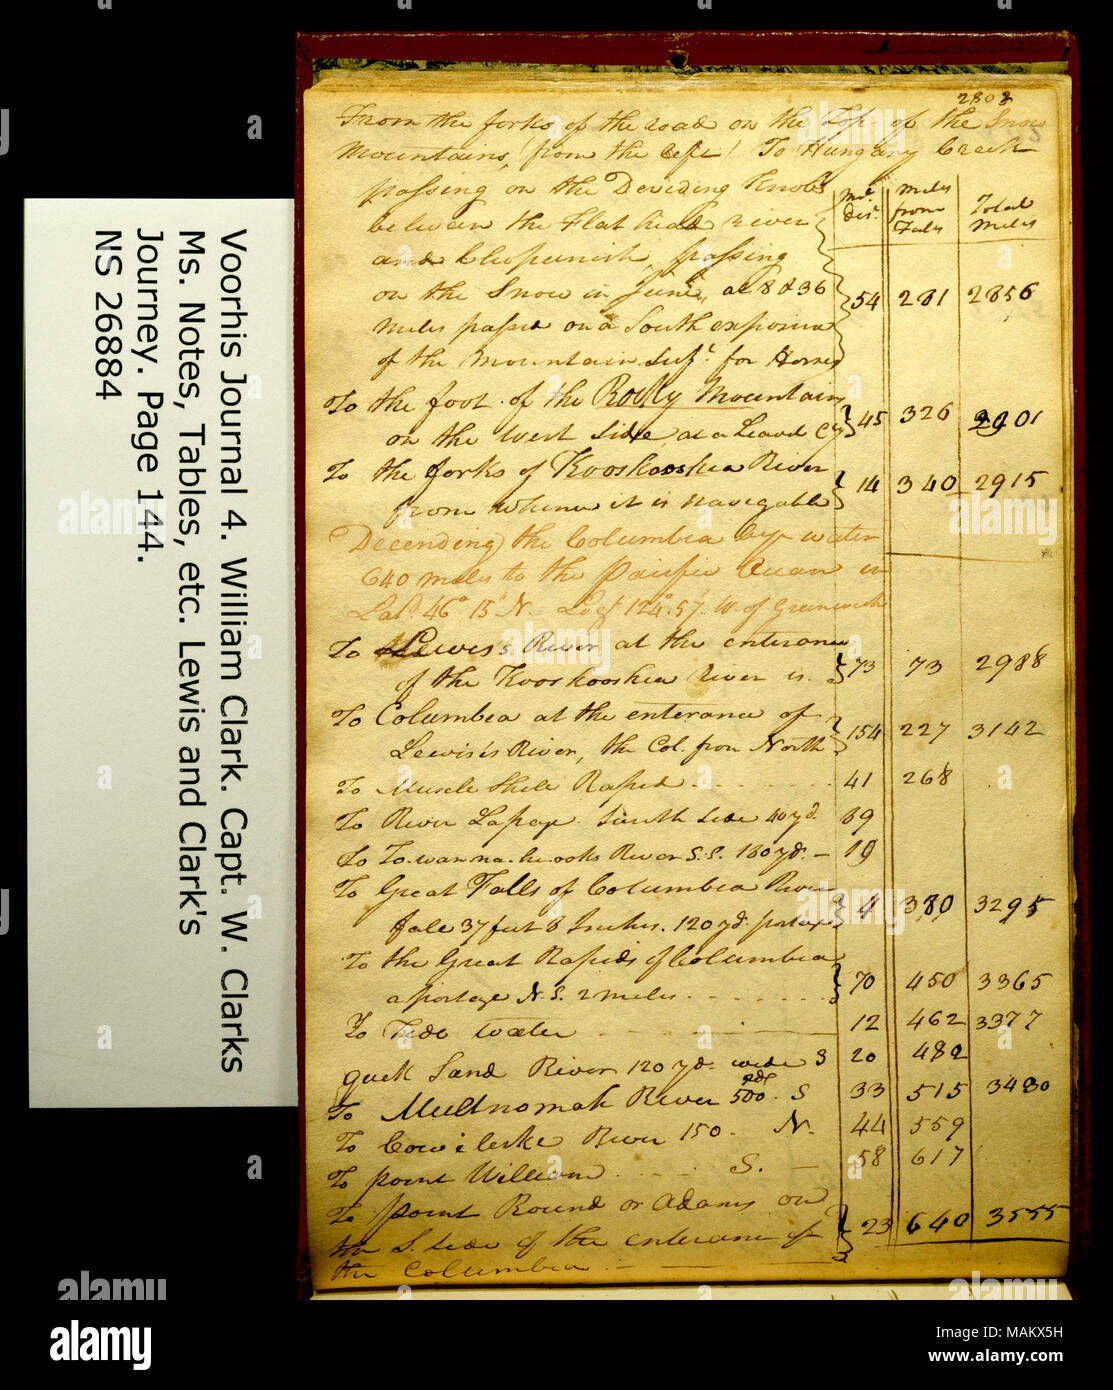 2802
From the forks of the road on the top of the Snow
Mountains, from the left! To Hungary Creek
passing on the Deviding Knobs
between the Flat head river
and Chopunnish, passing
on the Snow in June, as 8 & 36
miles passed on a South exposure
of the Mountain Suft. for Horses
Mls dis. miles from Falls Total miles
54 281 2856
To the foot of the Rocky Mountains
on the West Side at a Leavel &c 45 326 2901
To the forks of Kooskooskea River
from whence it is navigable 14 340 2915
Decending the Columbia by water
640 miles to the Pacific Ocean in
Latd. 46° 15' N. Logt. 124° 57' W. of Greenwich
To Lewis's River at the enterance
of the Kooskooskea River is 73 73 2988
To Columbea at the enterance of
Lewis's River, the Col. from North 154 227 3142
To Muscle Shell Rapid 41 268
To River Lapage South Side 40 yd. 89
To To-wan-na-he-ooks River S.S. 180 yd. 19
To Great Falls of Columbea River
fall 37 feet 8 Inches. 120 yd. portage 4 380 3295
To the Great Rapids of Columbea
a portage N.S. 2 miles 70 450 3365
To Tide water 12 462 3377
quck Sand River 120 yd. wide S 20 482
To Multnomah River 500 yds. S 33 515 3480
To Cowileske River 150. N. 44 559
To point William S. 58 617
To point Round or Adams on
the S. side of the enterance of
the Columbea 23 640 3555
Voorhis Journal 4. William Clark. Capt. W. Clarks
Ms. Notes, Tables, etc. Lewis and Clark's
Journey. Page 144.
NS 26884
alamy
alamy
alamy
alamy
alamy
alamy
a
a
a
a
a
a
alamy
Image ID: MAKX5H
www.alamy.com